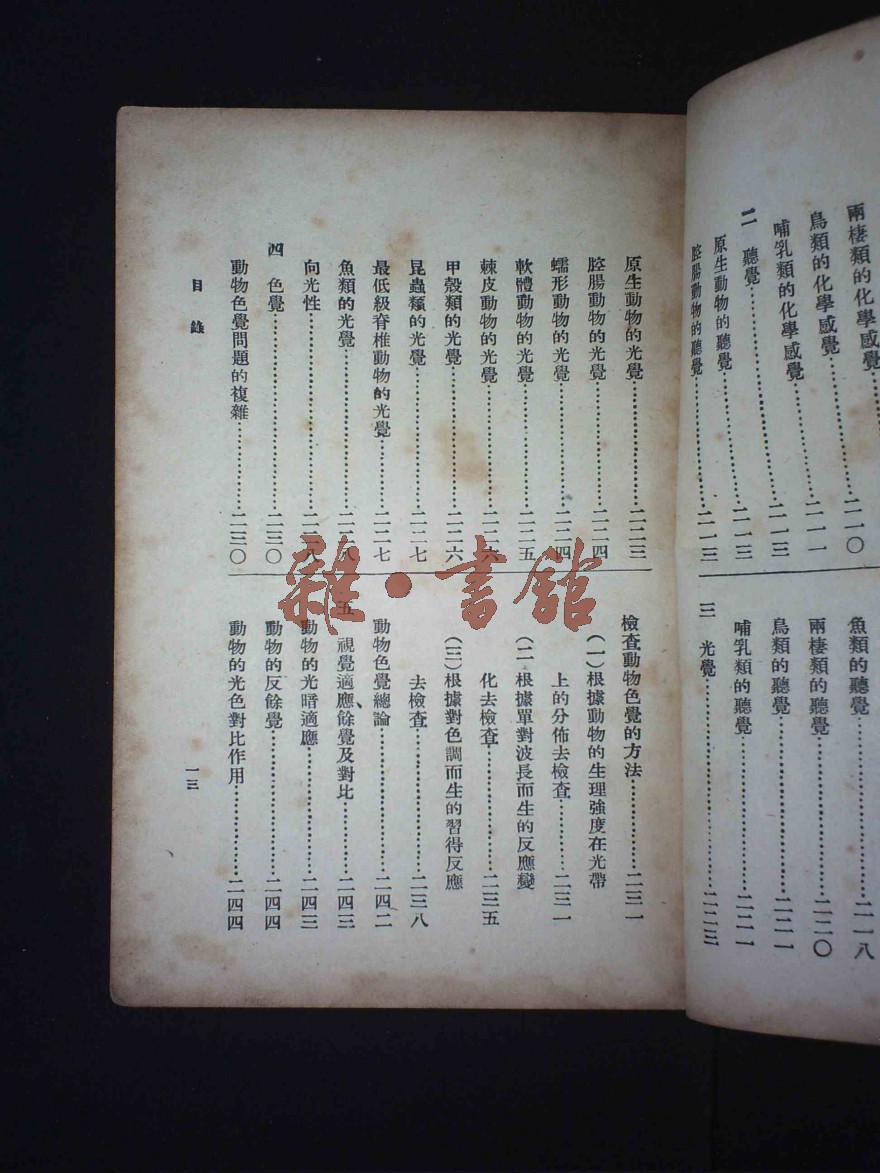 兩棲類的化學感覺……二一〇
鳥類的化學感覺……二一一
哺乳類的化學感覺……二一三
二 聽覺……二一三
原生動物的聽覺……二一三
腔腸動物的聽覺……二一三
魚類的聽覺……二一八
兩棲類的聽覺……二二〇
鳥類的聽覺……二二一
哺乳類的聽覺……二二一
三 光覺……二二三
原生動物的光覺……二二三
腔腸動物的光覺……二二四
蠕形動物的光覺……二二四
軟體動物的光覺……二二五
棘皮動物的光覺……二二六
甲殼類的光覺……二二六
昆蟲類的光覺……二二七
最低級脊椎動物的光覺……二二七
魚類的光覺……二二八
向光性……二二八
四 色覺……二三〇
動物色覺問題的複雜……二三〇
檢查動物色覺的方法……二三一
(一)根據動物的生理強度在光帶
上的分佈去檢查……二三一
(二 根據單對波長而生的反應變
化去檢查……二三五
(三)根據對色調而生的習得反應
去檢查……二三八
動物色覺總論……二四二
五 視覺適應、餘覺及對比……二四三
動物的光暗適應……二四三
動物的反餘覺……二四四
動物的光色對比作用……二四四
目錄
一三
雜·書館